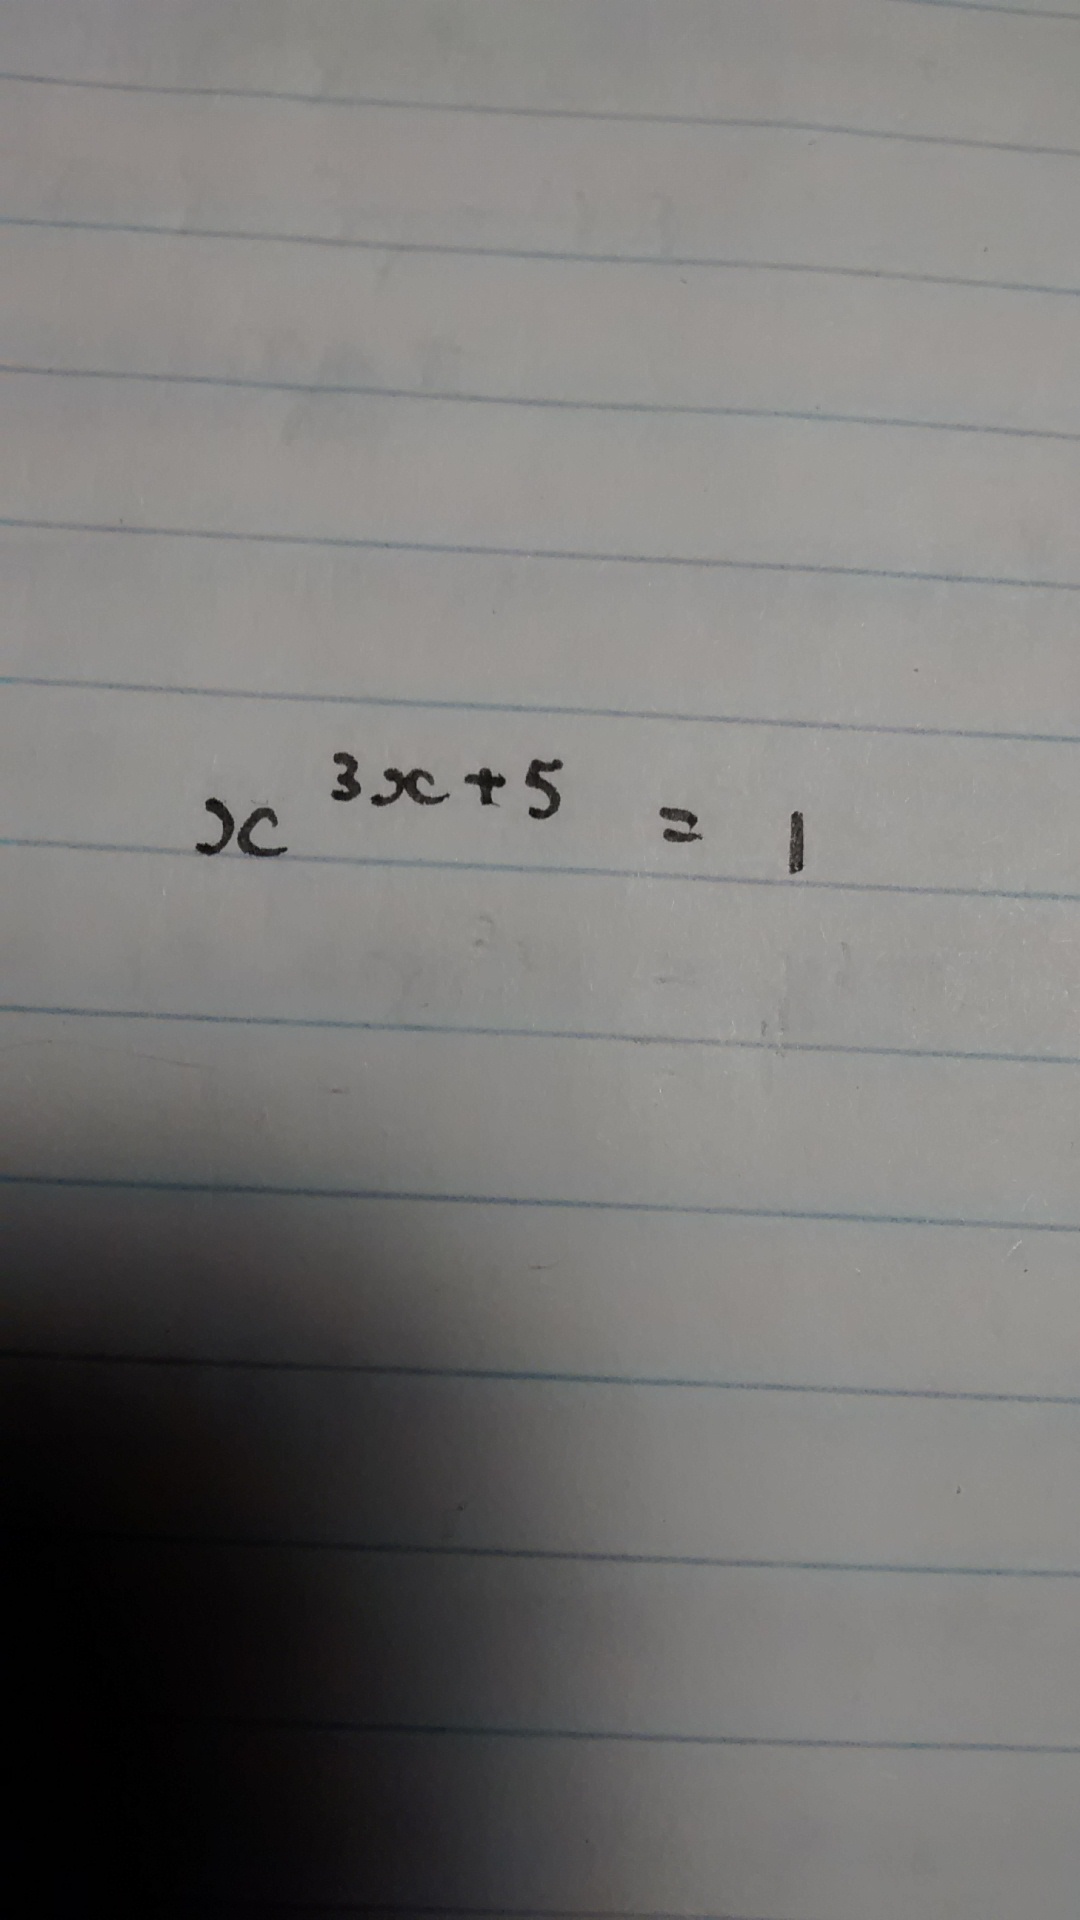 x^{3x+5} = 1